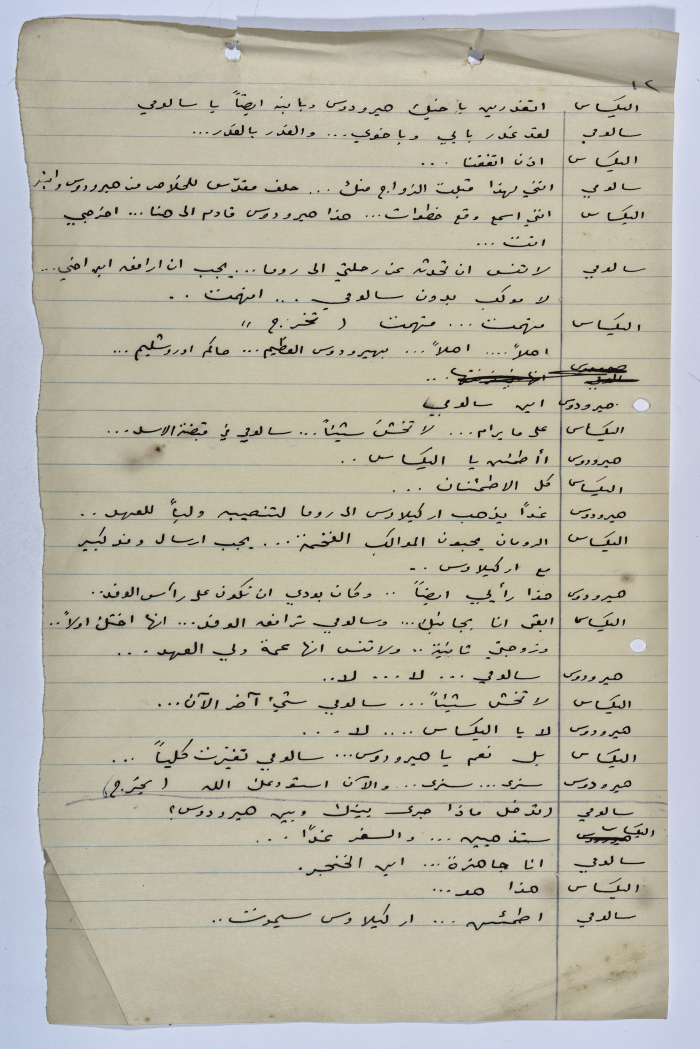 ١٢
اليكساس اتغدرين بأخيك هيرودوس وبابنه ايضاً يا سالومي
سالومي لقد غدر بابي وباخوي... والغدر بالغدر...
اليكساس اذن اتفقنا ...
سالومي انني لهذا قبلت الزواج منك... حلف مقدّس للخلاص من هيرودوس وابنه
اليكساس انني اسمع وقع خطوات... هذا هيرودوس قادم الى هنا... اخرجي
انت ...
سالومي لا تنس ان تحدثه عن رحلتي الى روما... يجب ان ارافق ابن اخي...
لا موكب بدون سالومي ... افهمت ..
اليكساس فهمت ... فهمت ( تخرج "
اهلاً .... اهلاً ... بهيرودوس العظيم... حاكم اورشليم ...
هيرودوس اين سالومي
اليكساس على ما يرام... لا تخش شيئاً... سالومي في قبضة الاسد...
هيرودوس أأطمئن يا اليكساس ..
اليكساس كل الاطمئنان ...
هيرودوس غداً يذهب اركيلاوس الى روما لتنصيبه ولياً للعهد ..
اليكساس الرومان يحبون المواكب الفخمة... يجب ارسال وفد كبير
مع اركيلاوس ..
هيرودوس هذا رأيي ايضاً .. وكان بودي ان تكون على رأس الوفد..
اليكساس ابقى انا بجانبك... وسالومي ترافق الوفد... انها اختك اولاً..
وزوجتي ثانية .. ولا تنس انها عمة ولي العهد ...
هيرودوس سالومي ... لا ... لا..
اليكساس لا تخش شيئاً... سالومي شيء آخر الآن...
هيرودوس لا يا اليكساس .... لا ...
اليكساس بل نعم يا هيرودوس... سالومي تغيرت كلياً ...
هيرودوس سنرى... سنرى... والآن استودعك الله ( يخرج )
سالومي (تدخل ماذا جرى بينك وبين هيرودوس؟
اليكساس ستذهبين ... والسفر غداً ...
سالومي انا جاهزة ... اين الخنجر.
اليكساس هذا هو...
سالومي اطمئن ... اركيلاوس سيموت ..